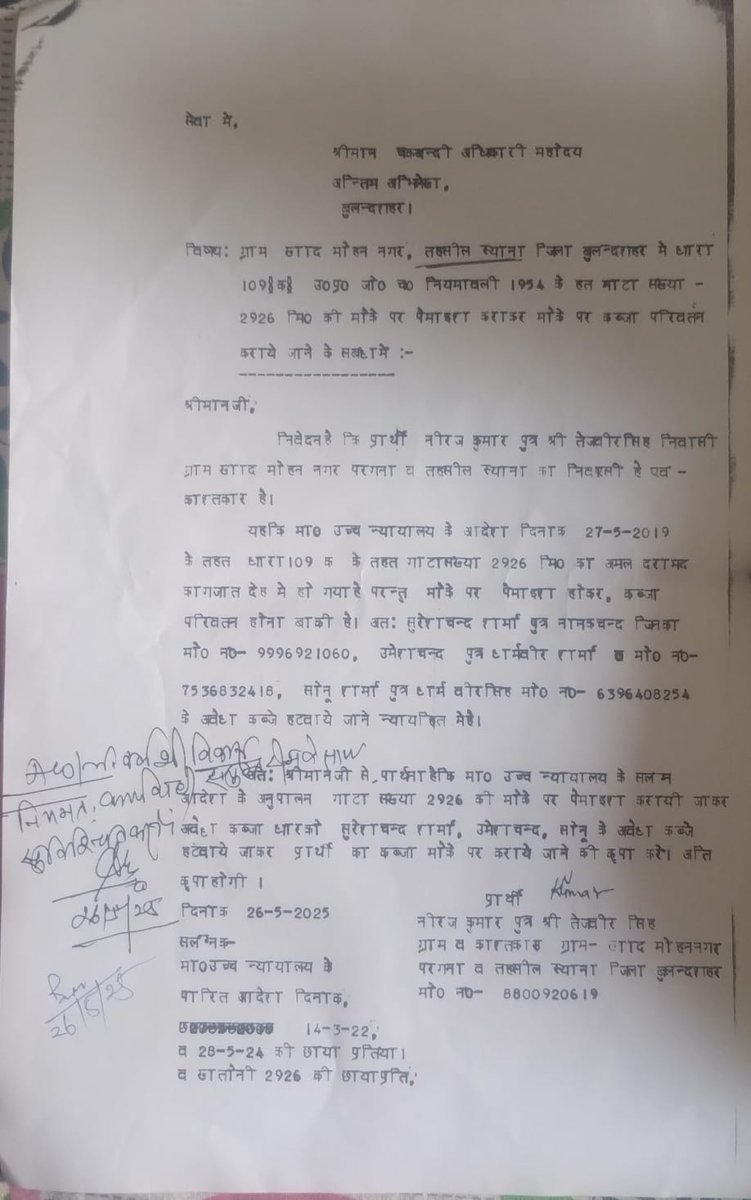 सेवा में,
श्रीमान चकबन्दी अधिकारी महोदय
अन्तिम अभिलेख,
बुलन्दशहर।
विषय: ग्राम खाद मोहन नगर, तहसील स्याना जिला बुलन्दशहर मे धारा
109§क§ उ0प्र0 जो0 च0 नियमावली 1954 के हत गाटा संख्या -
2926 मि0 की मौके पर पैमाइश कराकर मौके पर कब्जा परिवर्तन
कराये जाने के सबंधमें :-
श्रीमानजी,
निवेदनहै कि प्रार्थी नीरज कुमार पुत्र श्री तेजवीरसिंह निवासी
ग्राम खाद मोहन नगर परगना व तहसील स्याना का निवासी है एवं -
काश्तकार है।
यहकि मा0 उच्च न्यायालय के आदेश दिनांक 27-5-2019
के तहत धारा109 क के तहत गाटासंख्या 2926 मि0 का अमल दरामद
कागजात देह मे हो गयाहै परन्तु मौके पर पैमाइश होकर, कब्जा
परिवर्तन होना बाकी है। अत: सुरेशचन्द शर्मा पुत्र नानकचन्द जिनका
मो0 न0- 9996921060, उमेशचन्द पुत्र धर्मवीर शर्मा मो0 न0-
7536832418, सोनू शर्मा पुत्र धर्म वीरसिंह मो0 न0- 6396408254
के अवैध कब्जे हटवाये जाने न्यायहित मेहै।
अत: श्रीमानजी से प्रार्थनाहैकि मा0 उच्च न्यायालय के सलंग्न
आदेश के अनुपालन गाटा संख्या 2926 की मौके पर पैमाइश करायी जाकर
अवैध कब्जा धारको सुरेशचन्द शर्मा, उमेशचन्द, सोनू के अवैध कब्जे
हटवाये जाकर प्रार्थी का कब्जा मौके पर कराये जाने की कृपा करे। अति
कृपाहोगी ।
नियमत: कार्यवाही
26/5/25
26/5/25
प्रार्थी Kumar
दिनांक 26-5-2025
नीरज कुमार पुत्र श्री तेजवीर सिंह
ग्राम व काश्तकार ग्राम- खाद मोहननगर
परगना व तहसील स्याना जिला बुलन्दशहर
मो0 न0- 8800920619
सलंग्नक-
मा0उच्च न्यायालय के
पारित आदेश दिनांक,
14-3-22,
व 28-5-24 की छाया प्रतिया।
व खतोनी 2926 की छायाप्रति,